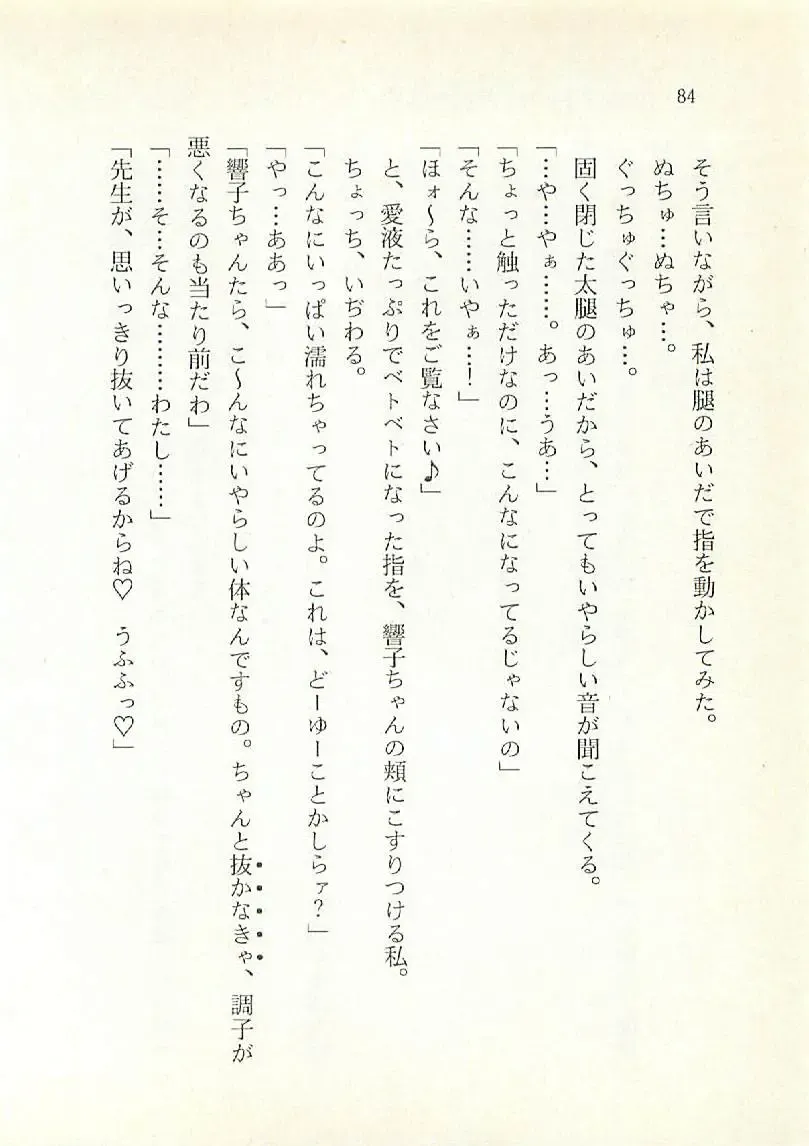 84
そう言いながら、私は腿のあいだで指を動かしてみた。
ぬちゅ…ぬちゃ…。
ぐっちゅぐっちゅ…。
固く閉じた太腿のあいだから、とってもいやらしい音が聞こえてくる。
「…や…やぁ……。あっ…うあ…」
「ちょっと触っただけなのに、こんなになってるじゃないの」
「そんな……いやぁ…!」
「ほォ〜ら、これをご覧なさい♪」
と、愛液たっぷりでベトベトになった指を、響子ちゃんの頬にこすりつける私。
ちょっち、いぢわる。
「こんなにいっぱい濡れちゃってるのよ。これは、どーゆーことかしらァ?」
「やっ…ああっ」
「響子ちゃんたら、こ〜んなにいやらしい体なんですもの。ちゃんと抜かなきゃ、調子が
悪くなるのも当たり前だわ」
「……そ…そんな………わたし……」
「先生が、思いっきり抜いてあげるからね♡　うふふっ♡」